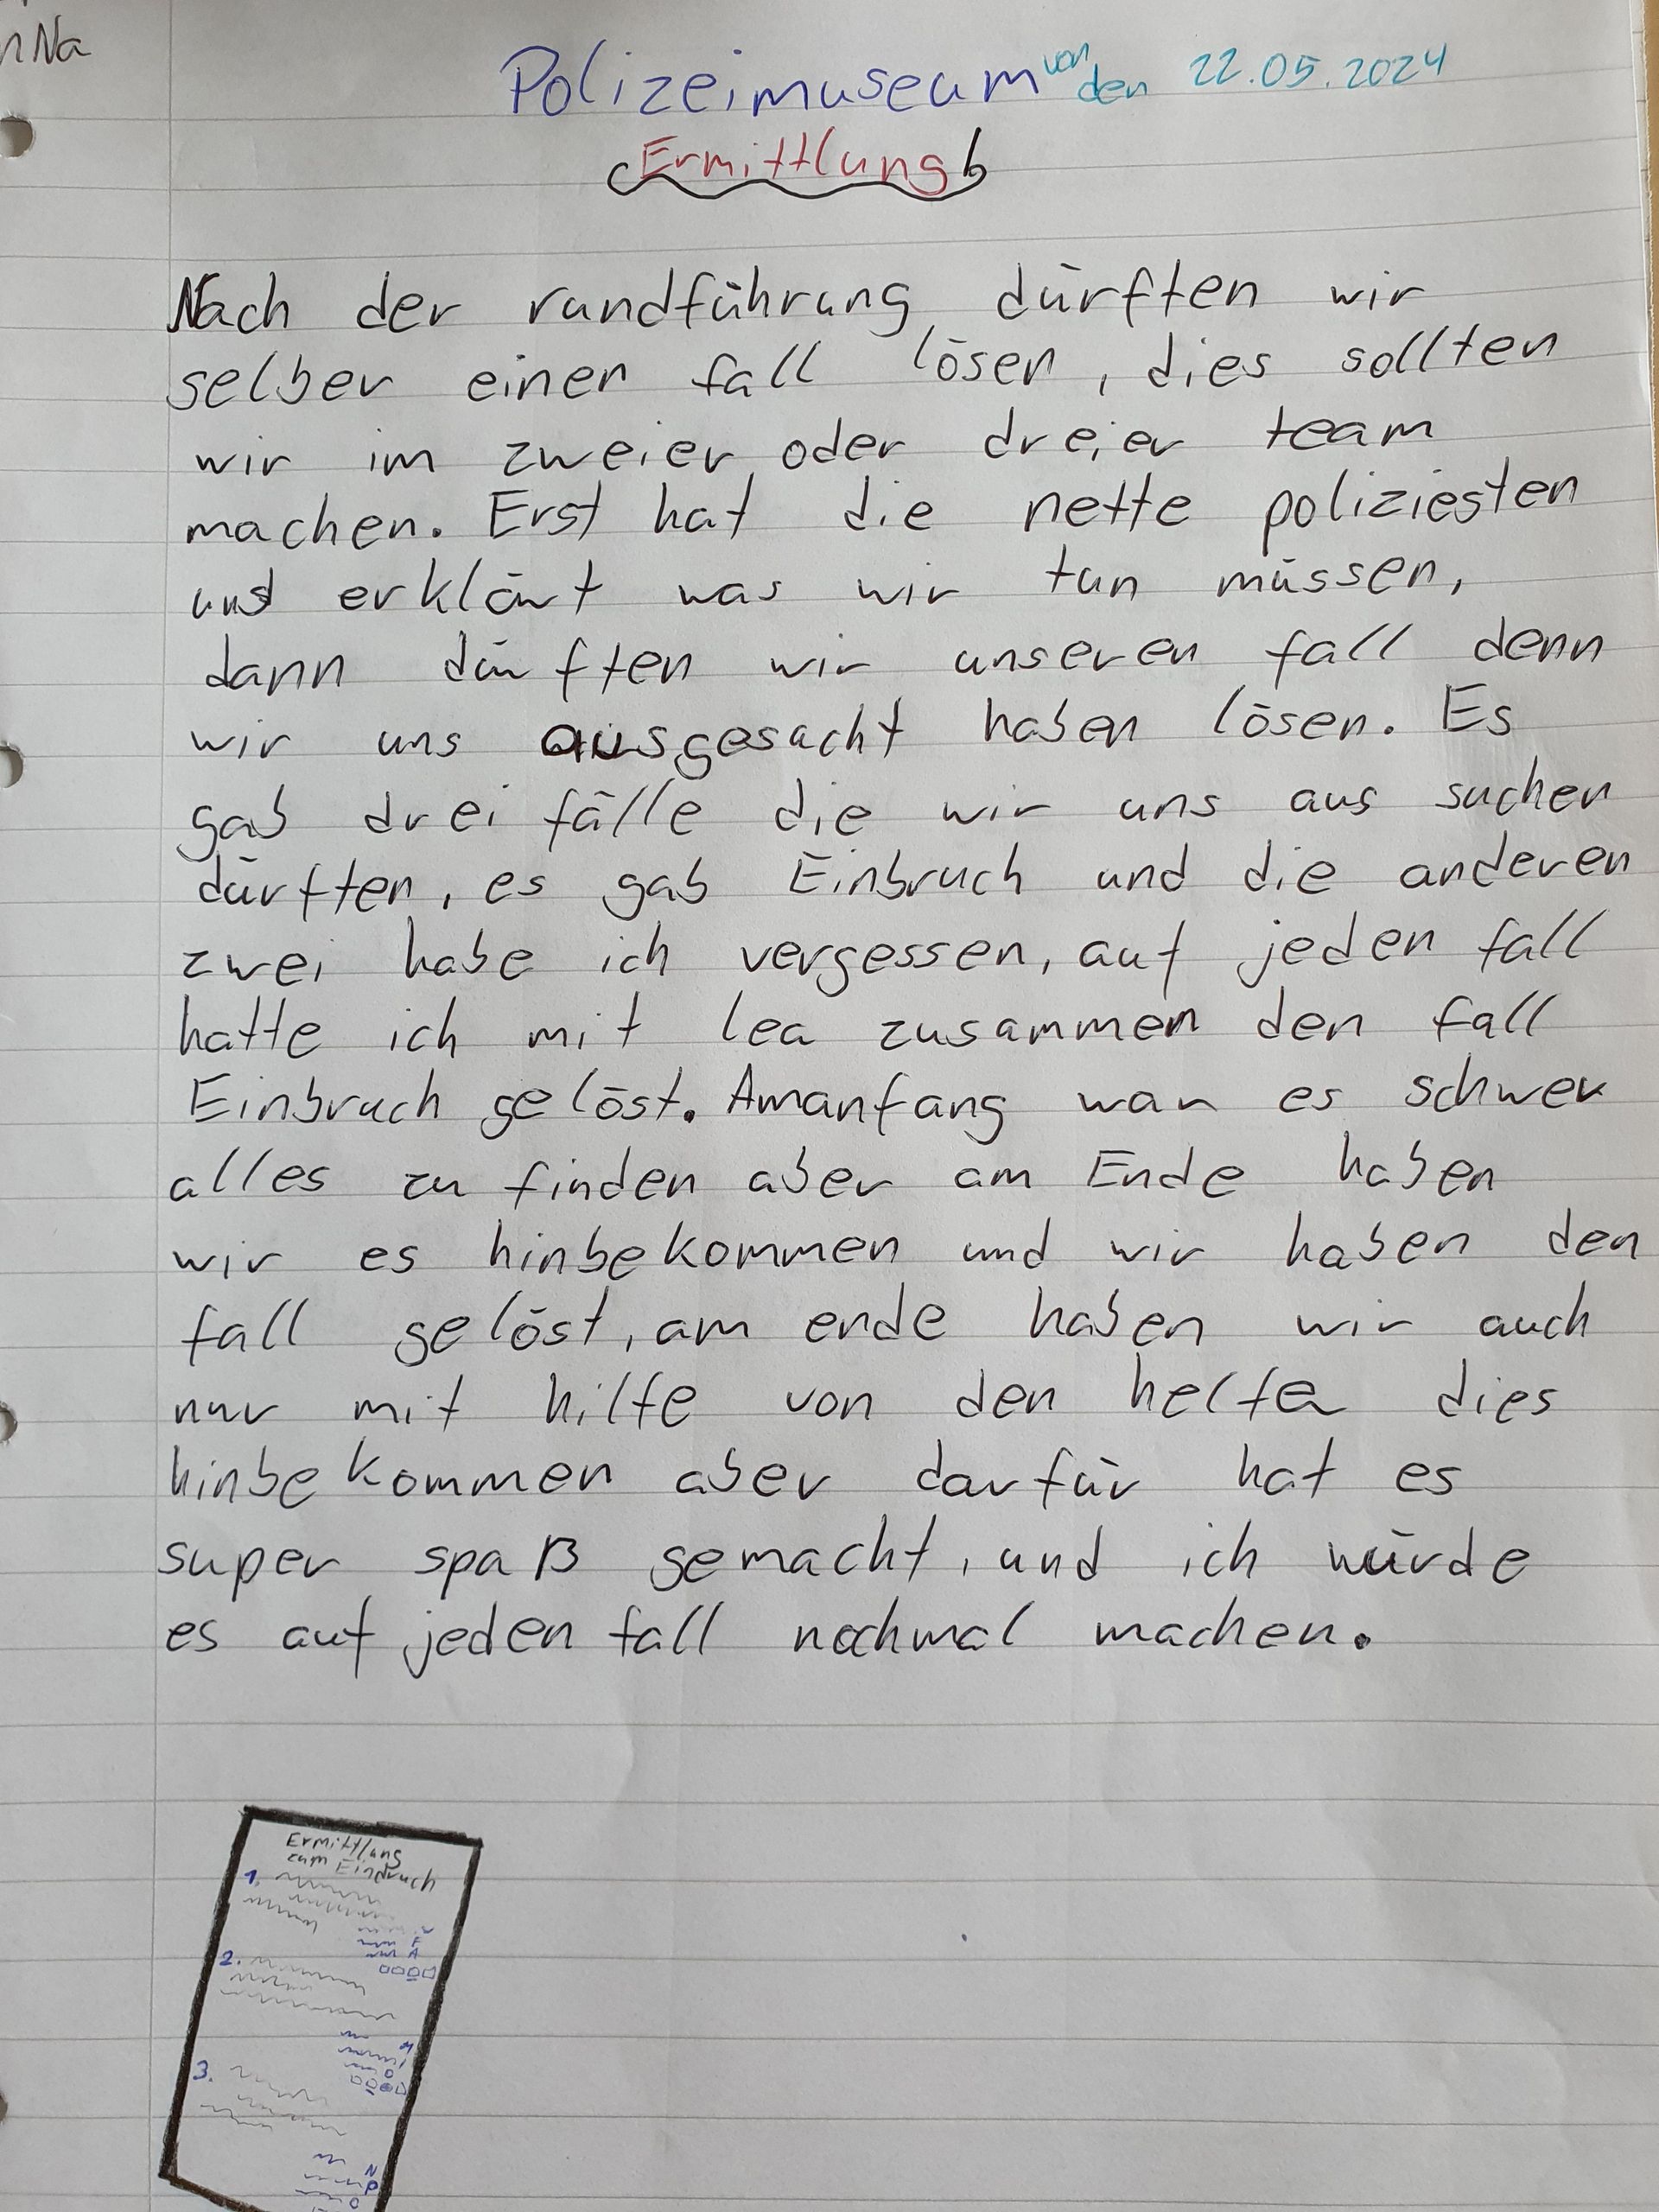 nNa
Polizeimuseum von den 22.05.2024
Ermittlung
Nach der rundführung dürften wir
selber einen fall lösen, dies sollten
wir im zweier oder dreier team
machen. Erst hat die nette poliziesten
uns erklärt was wir tun müssen,
dann dürften wir unseren fall denn
wir uns ausgesucht haben lösen. Es
gab drei fälle die wir uns aus suchen
dürften, es gab Einbruch und die anderen
zwei habe ich vergessen, auf jeden fall
hatte ich mit lea zusammen den fall
Einbruch gelöst. Amanfang war es schwer
alles zu finden aber am Ende haben
wir es hinbekommen und wir haben den
fall gelöst, am ende haben wir auch
nur mit hilfe von den helfer dies
hinbekommen aber darfür hat es
super spaß gemacht, und ich würde
es auf jeden fall nochmal machen.
Ermittlung
zum Einbruch
1.
F
A
2.
M
I
O
3.
N
P
O